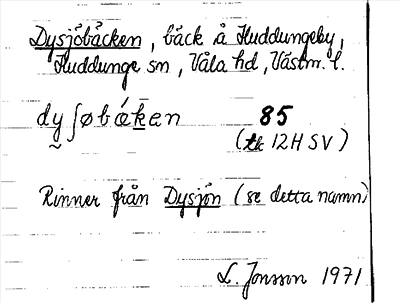 Dysjöbäcken, bäck å Huddungeby,
Huddunge sn, Våla hd, Västm. l.
dy̰ʃøbǽḵen 85
(tk 12H SV)
Rinner från Dysjön (se detta namn)
L. Jonsson 1971